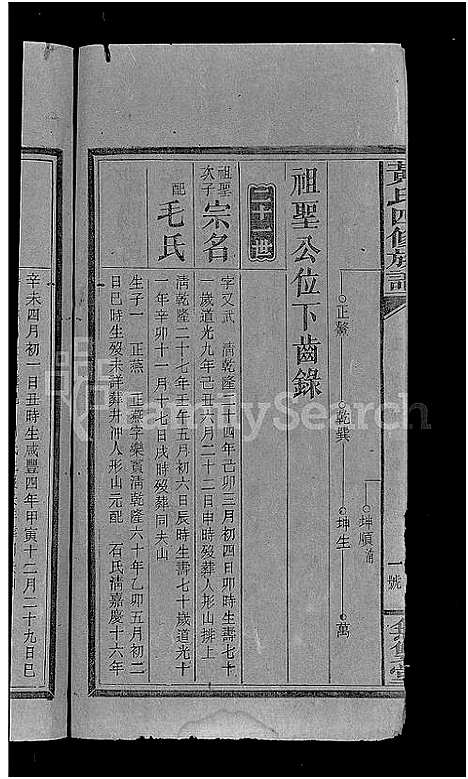 黃氏四修族譜
一號
○坤順
○正鰲 ○乾巽 ○坤生 ○萬
祖聖公位下齒錄
二十一世
祖聖次子 宗名
字又武 清乾隆二十四年己卯三月初四日卯時生壽七十
一歲道光九年己丑六月二十二日申時歿葬人形山排上
配 毛氏
清乾隆二十七年壬午五月初六日辰時生壽七十歲道光十
一年辛卯十一月十七日戌時歿葬同夫山
生子一 正燕 正燕字樂賓清乾隆六十年乙卯五月初二
日巳時生歿未詳葬井沖人形山元配 石氏清嘉慶十六年
辛未四月初一日丑時生咸豐四年甲寅十二月二十九日巳
FamilySearch